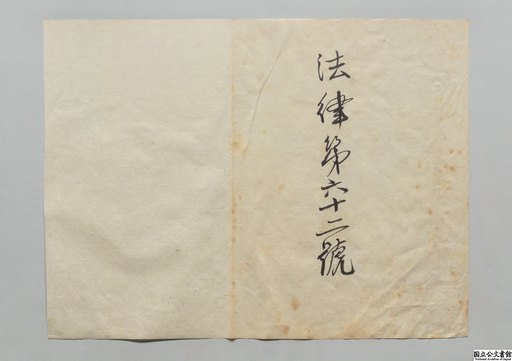 法律第六十二號
国立公文書館
National Archives of Japan